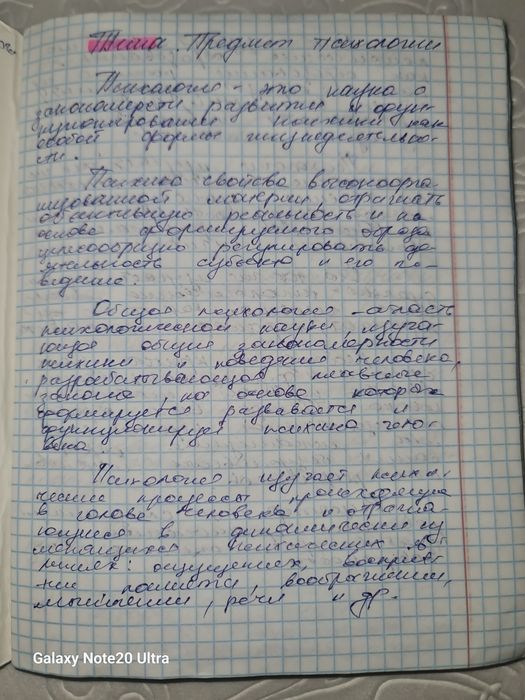 Тема. Предмет психологии
Психология - это наука о
закономерности развития и функ
ционирования психики как
особой формы жизнедеятельно-
сти.
Психика свойство высокоорга-
низованной материи отражать
объективную реальность и на
основе формируемого образа
целесообразно регулировать де-
ятельность субъекта и его по-
ведение.
Общая психология - область
психологической науки, изуча-
ющая общие закономерности
психики и поведения человека,
разрабатывающая
законы, на основе которых
формируется развивается и
функционирует психика чело-
века.
Психология изучает психи-
ческие процессы происходящие
в голове человека и отража-
ющиеся в динамически из
меняющихся психических
ощущениях, восприя-
тие памяти, воображении,
мышлении, речи и др.
Galaxy Note20 Ultra